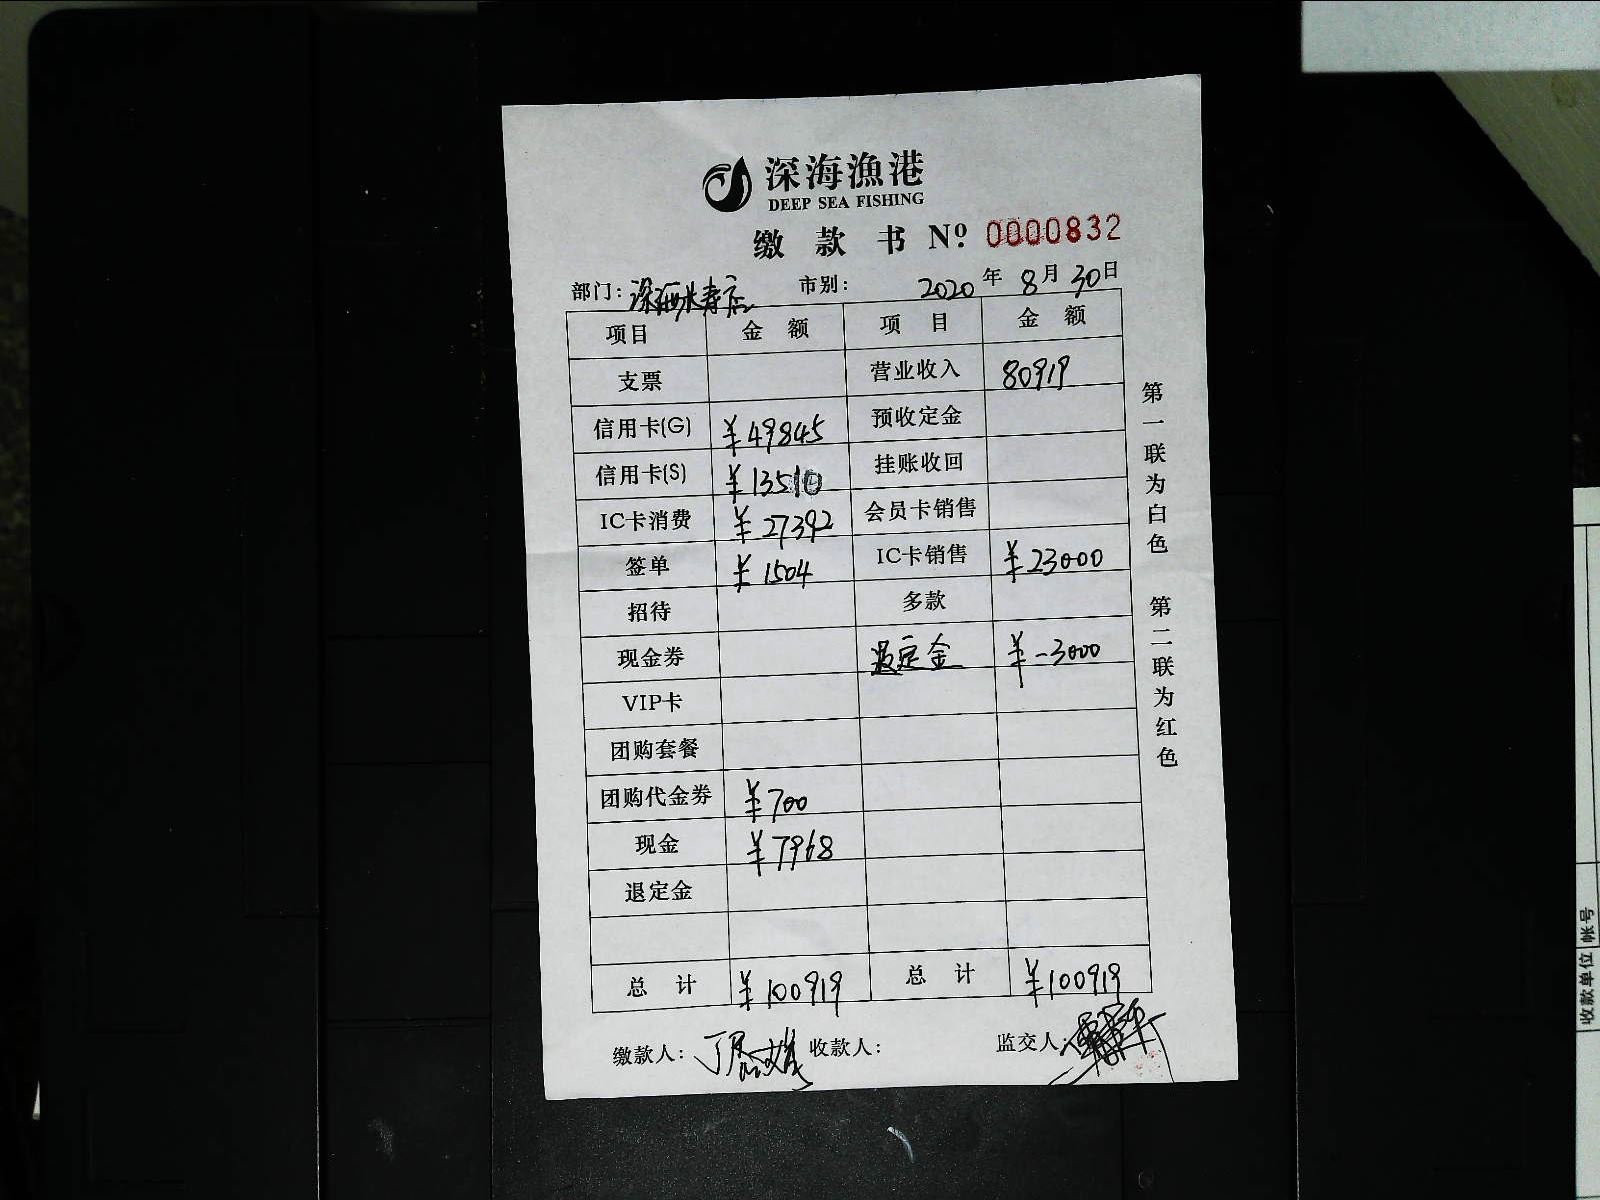 深海漁港
DEEP SEA FISHING
缴款书 Nº 0000832
部门: 市别: 2020年8月30日
项目 金额 项目 金额
支票 营业收入 80919
信用卡(G) ¥49845 预收定金
信用卡(S) ¥13510 挂账收回
IC卡消费 ¥27392 会员卡销售
签单 ¥1504 IC卡销售 ¥23000
招待 多款
现金券 退定金 ¥-3000
VIP卡
团购套餐
团购代金券 ¥700
现金 ¥7968
退定金
总计 ¥100919 总计 ¥100919
缴款人: 收款人: 监交人:
第一联为白色 第二联为红色
收款单位 帐号